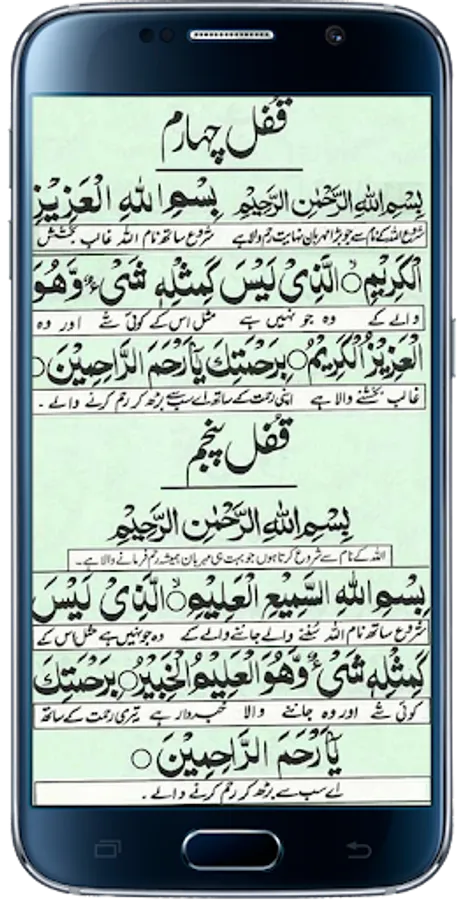 قفل چہارم
بِسْمِ اللهِ الرَّحْمٰنِ الرَّحِيْمِ بِسْمِ اللهِ الْعَزِيْزِ
شروع اللہ کے نام سے جو بڑا مہربان نہایت رحم والا ہے شروع ساتھ نام اللہ غالب بخشش
الْكَرِيْمِ ۙ الَّذِىْ لَيْسَ كَمِثْلِهٖ شَىْءٌ وَّهُوَ
والے کے وہ جو نہیں ہے مثل اس کے کوئی شے اور وہ
الْعَزِيْزُ الْكَرِيْمُ ○ بِرَحْمَتِكَ يَآ اَرْحَمَ الرَّاحِمِيْنَ ○
غالب بخشنے والا ہے اپنی رحمت کے ساتھ اے سب سے بڑھ کر رحم کرنے والے ۔
قفل پنجم
بِسْمِ اللهِ الرَّحْمٰنِ الرَّحِيْمِ
اللہ کے نام سے شروع کرتا ہوں جو بہت ہی مہربان ہمیشہ رحم فرمانے والا ہے۔
بِسْمِ اللهِ السَّمِيْعِ الْعَلِيْمِ ۙ الَّذِىْ لَيْسَ
شروع ساتھ نام اللہ سننے والے جاننے والے کے وہ جو نہیں ہے مثل اس کے
كَمِثْلِهٖ شَىْءٌ وَّهُوَ الْعَلِيْمُ الْخَبِيْرُ ○ بِرَحْمَتِكَ
کوئی شے اور وہ جاننے والا خبردار ہے تیری رحمت کے ساتھ
يَآ اَرْحَمَ الرَّاحِمِيْنَ ○
اے سب سے بڑھ کر رحم کرنے والے ۔